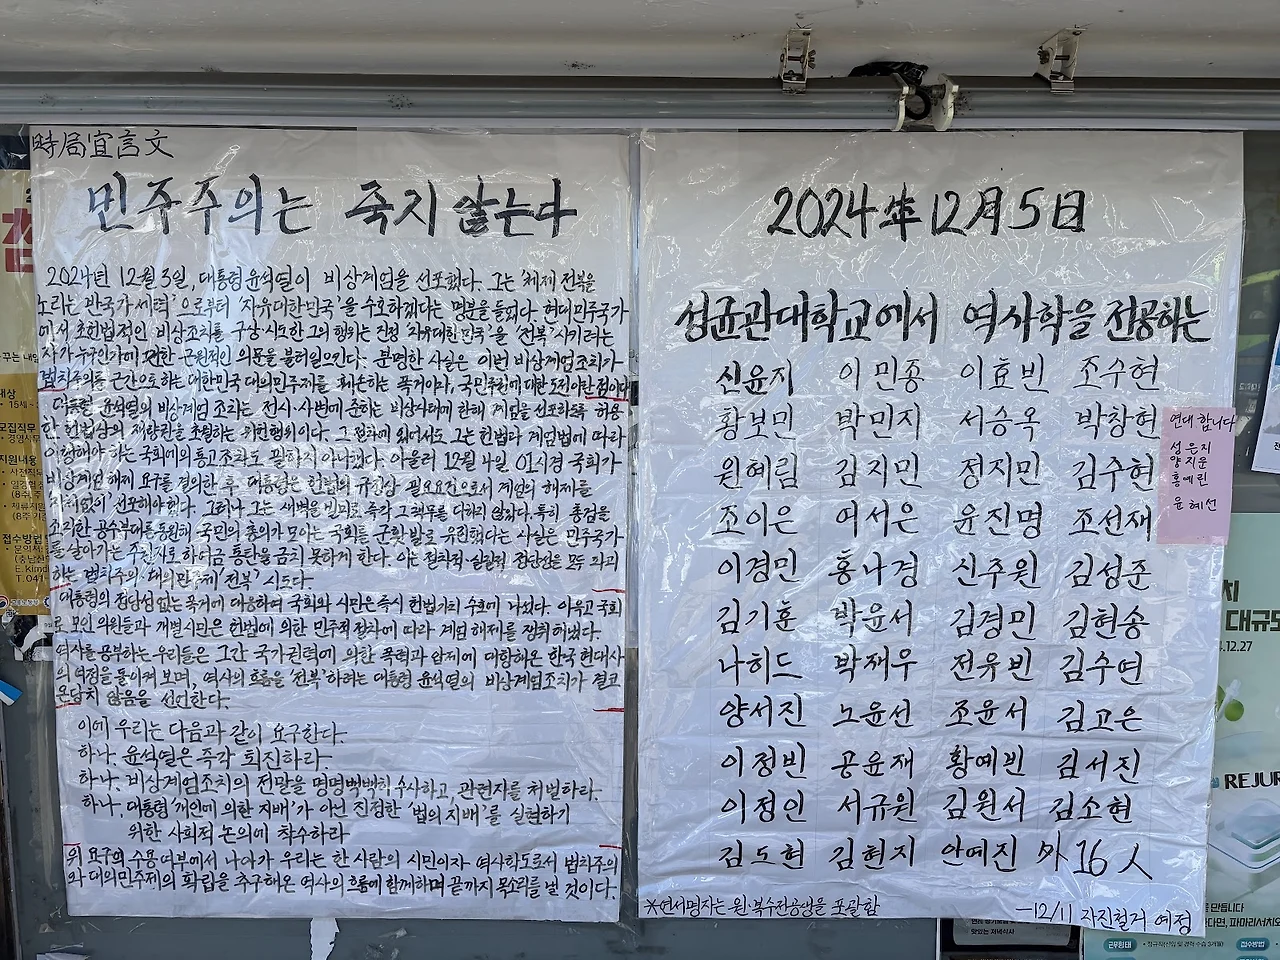 時局宣言文
민주주의는 죽지 않는다
2024년 12월 3일, 대통령 윤석열이 비상계엄을 선포했다. 그는 '체제 전복을
노리는 반국가세력'으로부터 '자유대한민국'을 수호하겠다는 명분을 들었다. 현대 민주국가
에서 초헌법적인 비상조치를 구상·시도한 그의 행위는 진정 '자유대한민국'을 '전복'시키려는
자가 누구인가에 대한 근원적인 의문을 불러일으킨다. 분명한 사실은 이번 비상계엄조치가
법치주의를 근간으로 하는 대한민국 대의민주제를 훼손하는 폭거이자, 국민주권에 대한 도전이란 점이다.
대통령 윤석열의 비상계엄 조치는 전시·사변에 준하는 비상사태에 한해 계엄을 선포하도록 허용
한 헌법상의 재량권을 초월하는 위헌행위이다. 그 절차에 있어서도 그는 헌법과 계엄법에 따라
이행해야 하는 국회에의 통고조차도 필하지 아니했다. 아울러 12월 4일 01시경 국회가
비상계엄 해제 요구를 결의한 후 대통령은 헌법의 규정상 필요요건으로서 계엄의 해제를
지체없이 선포해야했다. 그러나 그는 새벽을 빌미로 즉각 그 책무를 다하지 않았다. 특히 총검을
소지한 공수부대를 동원해 국민의 총의가 모이는 국회를 군홧발로 유린했다는 사실은 민주국가
를 살아가는 주권자로 하여금 통탄을 금치 못하게 한다. 이는 절차적·실질적 정당성을 모두 파괴
하는 법치주의·대의민주제 '전복' 시도다.
대통령의 정당성 없는 폭거에 대응하여 국회와 시민은 즉시 헌법가치 수호에 나섰다. 아울러 국회
로 모인 의원들과 개별시민은 헌법에 의한 민주적 절차에 따라 계엄 해제를 쟁취해냈다.
역사를 공부하는 우리들은 그간 국가권력에 의한 폭력과 압제에 대항해온 한국 현대사
의 여정을 돌이켜 보며, 역사의 흐름을 '전복'하려는 대통령 윤석열의 비상계엄조치가 결코
온당치 않음을 선언한다.
이에 우리는 다음과 같이 요구한다.
하나. 윤석열은 즉각 퇴진하라.
하나. 비상계엄조치의 전말을 명명백백히 수사하고, 관련자를 처벌하라.
하나. 대통령 '개인에 의한 지배'가 아닌 진정한 '법의 지배'를 실현하기
위한 사회적 논의에 착수하라
위 요구의 수용여부에서 나아가 우리는 한 사람의 시민이자 역사학도로서 법치주의
와 대의민주제의 확립을 추구해온 역사의 흐름에 함께하며 끝까지 목소리를 낼 것이다.
2024年 12月 5日
성균관대학교에서 역사학을 전공하는
신윤지 이민종 이효빈 조수현
황보민 박민지 서승옥 박창현
원혜림 김지민 정지민 김주현
조이은 여서은 윤진명 조선재
이경민 홍나경 신주원 김성준
김기훈 박윤서 김경민 김현송
나히드 박재우 전유빈 김수연
양서진 노윤선 조윤서 김고은
이정빈 공윤재 황예빈 김서진
이정인 서규원 김원서 김소현
김도현 김현지 안예진 外 16人
※연서명자는 원·복수전공생을 포괄함
-12/11 자진철거 예정
연대합니다
성은지
양지윤
홍예린
윤혜선
대규모
12.27
REJUR